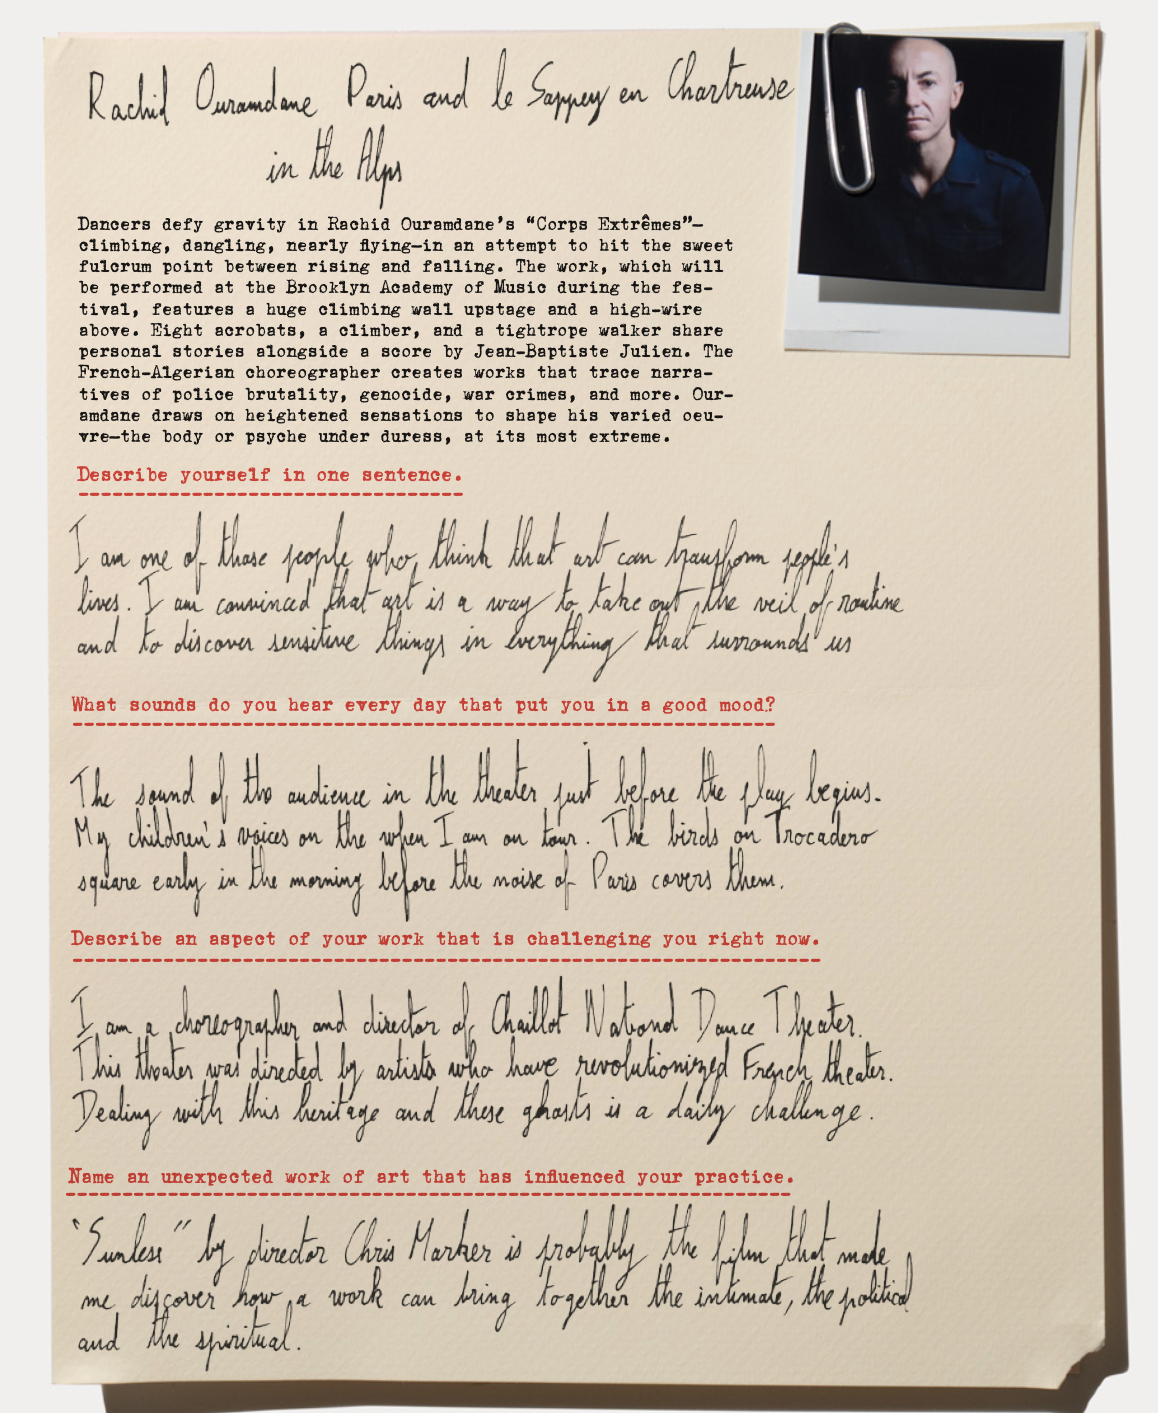 Rachid Ouramdane Paris and le Sappey en Chartreuse
in the Alps
Dancers defy gravity in Rachid Ouramdane's “Corps Extrêmes”—
climbing, dangling, nearly flying—in an attempt to hit the sweet
fulcrum point between rising and falling. The work, which will
be performed at the Brooklyn Academy of Music during the fes-
tival, features a huge climbing wall upstage and a high-wire
above. Eight acrobats, a climber, and a tightrope walker share
personal stories alongside a score by Jean-Baptiste Julien. The
French-Algerian choreographer creates works that trace narra-
tives of police brutality, genocide, war crimes, and more. Our-
amdane draws on heightened sensations to shape his varied oeu-
vre—the body or psyche under duress, at its most extreme.
Describe yourself in one sentence.
I am one of those people who think that art can transform people's
lives. I am convinced that art is a way to take out the veil of routine
and to discover sensitive things in everything that surrounds us
What sounds do you hear every day that put you in a good mood?
The sound of the audience in the theater just before the play begins.
My children's voices on the when I am on tour. The birds on Trocadero
square early in the morning before the noise of Paris covers them.
Describe an aspect of your work that is challenging you right now.
I am a choreographer and director of Chaillot National Dance Theater.
This theater was directed by artists who have revolutionized French theater.
Dealing with this heritage and these ghosts is a daily challenge.
Name an unexpected work of art that has influenced your practice.
“Sunless” by director Chris Marker is probably the film that made
me discover how a work can bring together the intimate, the political
and the spiritual.